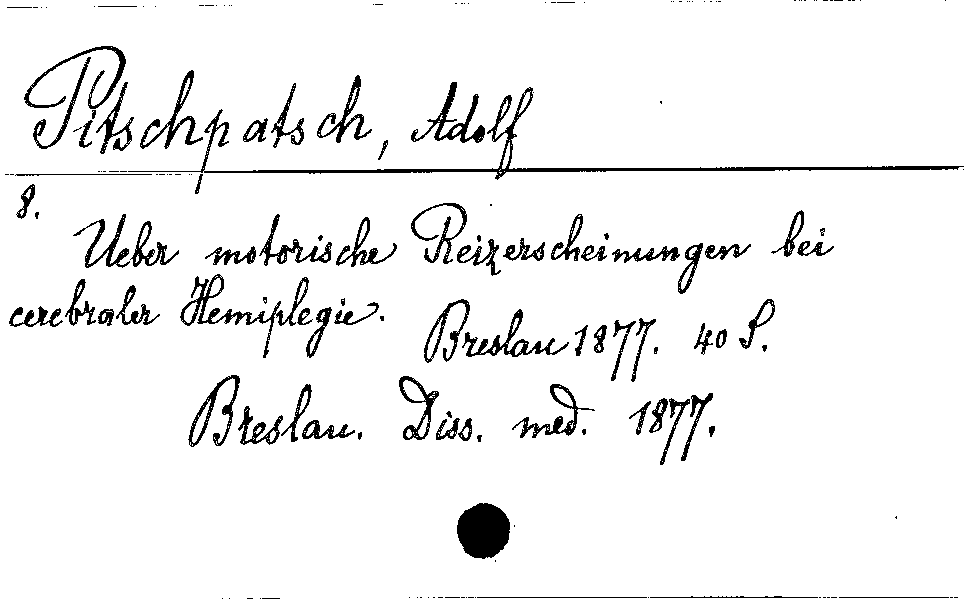 Pitschpatsch, Adolf
8.
Ueber motorische Reizerscheinungen bei
cerebraler Hemiplegie.
Breslau 1877. 40 S.
Breslau. Diss. med. 1877.